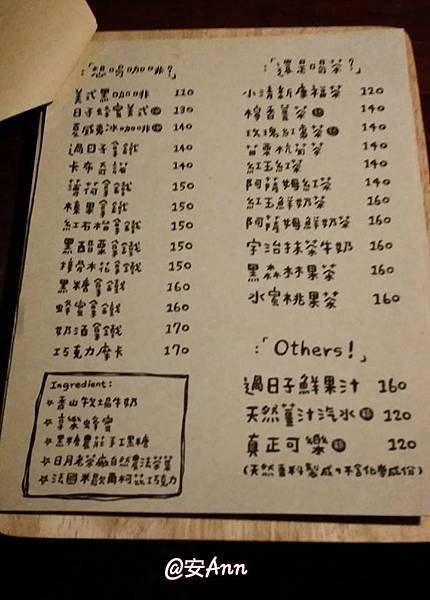 :「想喝咖啡?」
美式黑咖啡 110
日子蜂蜜美式 130
夏威夷冰咖啡 140
過日子拿鐵 140
卡布奇諾 140
薄荷拿鐵 150
榛果拿鐵 150
紅石榴拿鐵 150
黑醋栗拿鐵 150
接骨木花拿鐵 150
黑糖拿鐵 160
蜂蜜拿鐵 160
奶酒拿鐵 170
巧克力摩卡 170
Ingredient:
☆香山牧場牛奶
☆享樂蜂蜜
☆黑糖農莊手工黑糖
☆日月老茶廠自然農法茶葉
☆法國米歇爾柯茲巧克力
:「還是喝茶?」
小清新康福茶 120
檸香薑茶 140
玫瑰紅棗茶 140
苗栗杭菊茶 140
紅玉紅茶 140
阿薩姆紅茶 140
紅玉鮮奶茶 160
阿薩姆鮮奶茶 160
宇治抹茶牛奶 160
黑森林果茶 160
水蜜桃果茶 160
:「Others!」
過日子鮮果汁 160
天然薑汁汽水 120
真正可樂 120
(天然香料製成,不含化學成份)
@安Ann